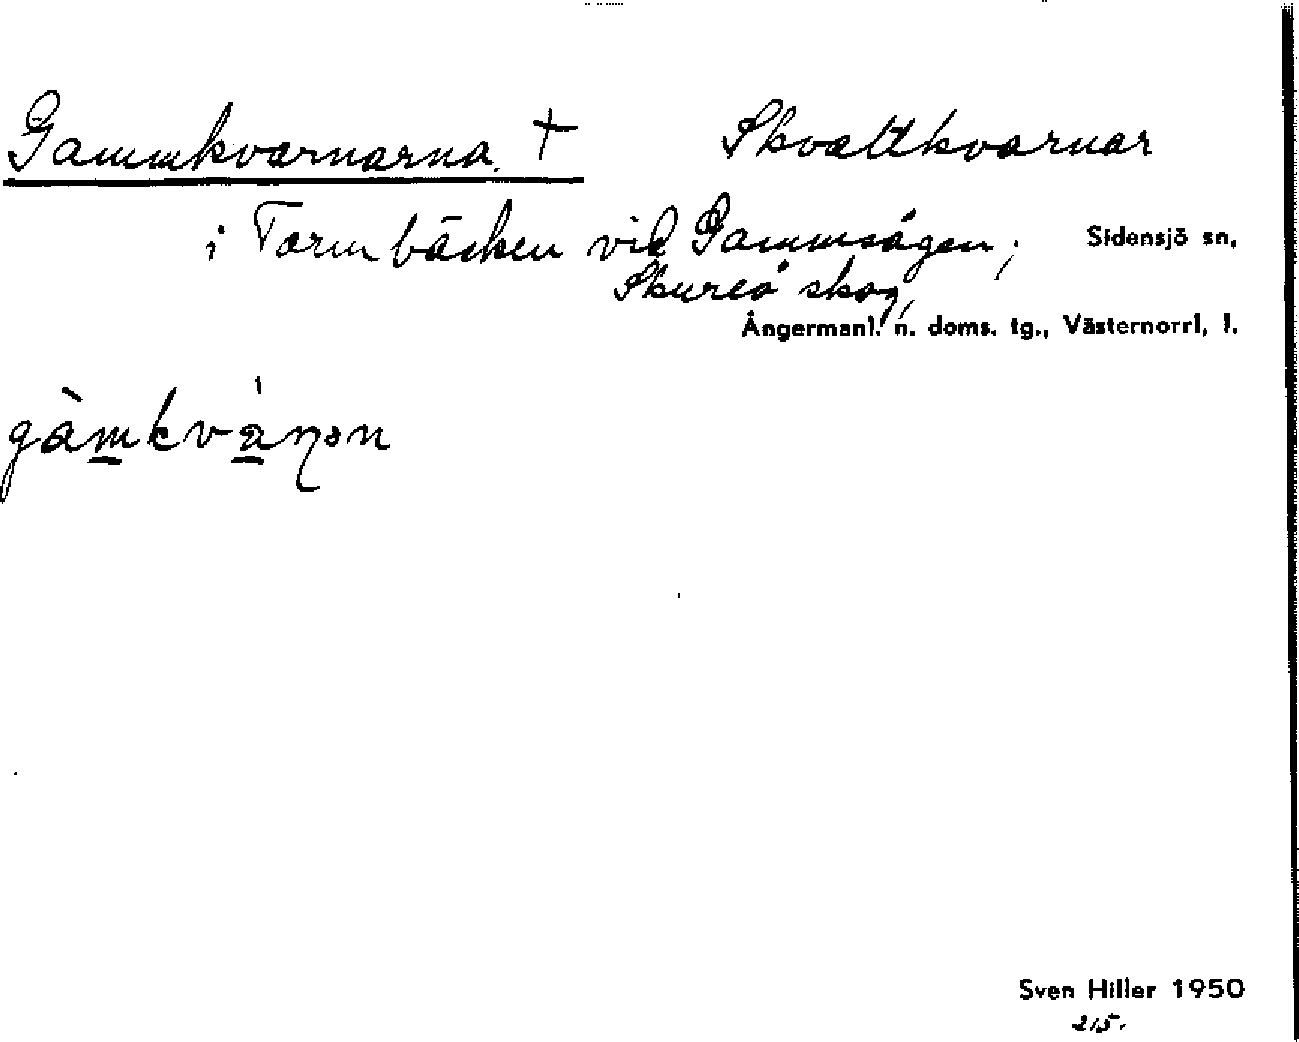 Gammkvarnarna. † Skvaltkvarnar
i Tarmbäcken vid Gammsågen, Sidensjö sn,
Skureå skog,
Ångermanl. n. doms. tg., Västernorrl. l.
gàmkvánɳon
Sven Hiller 1950
215.